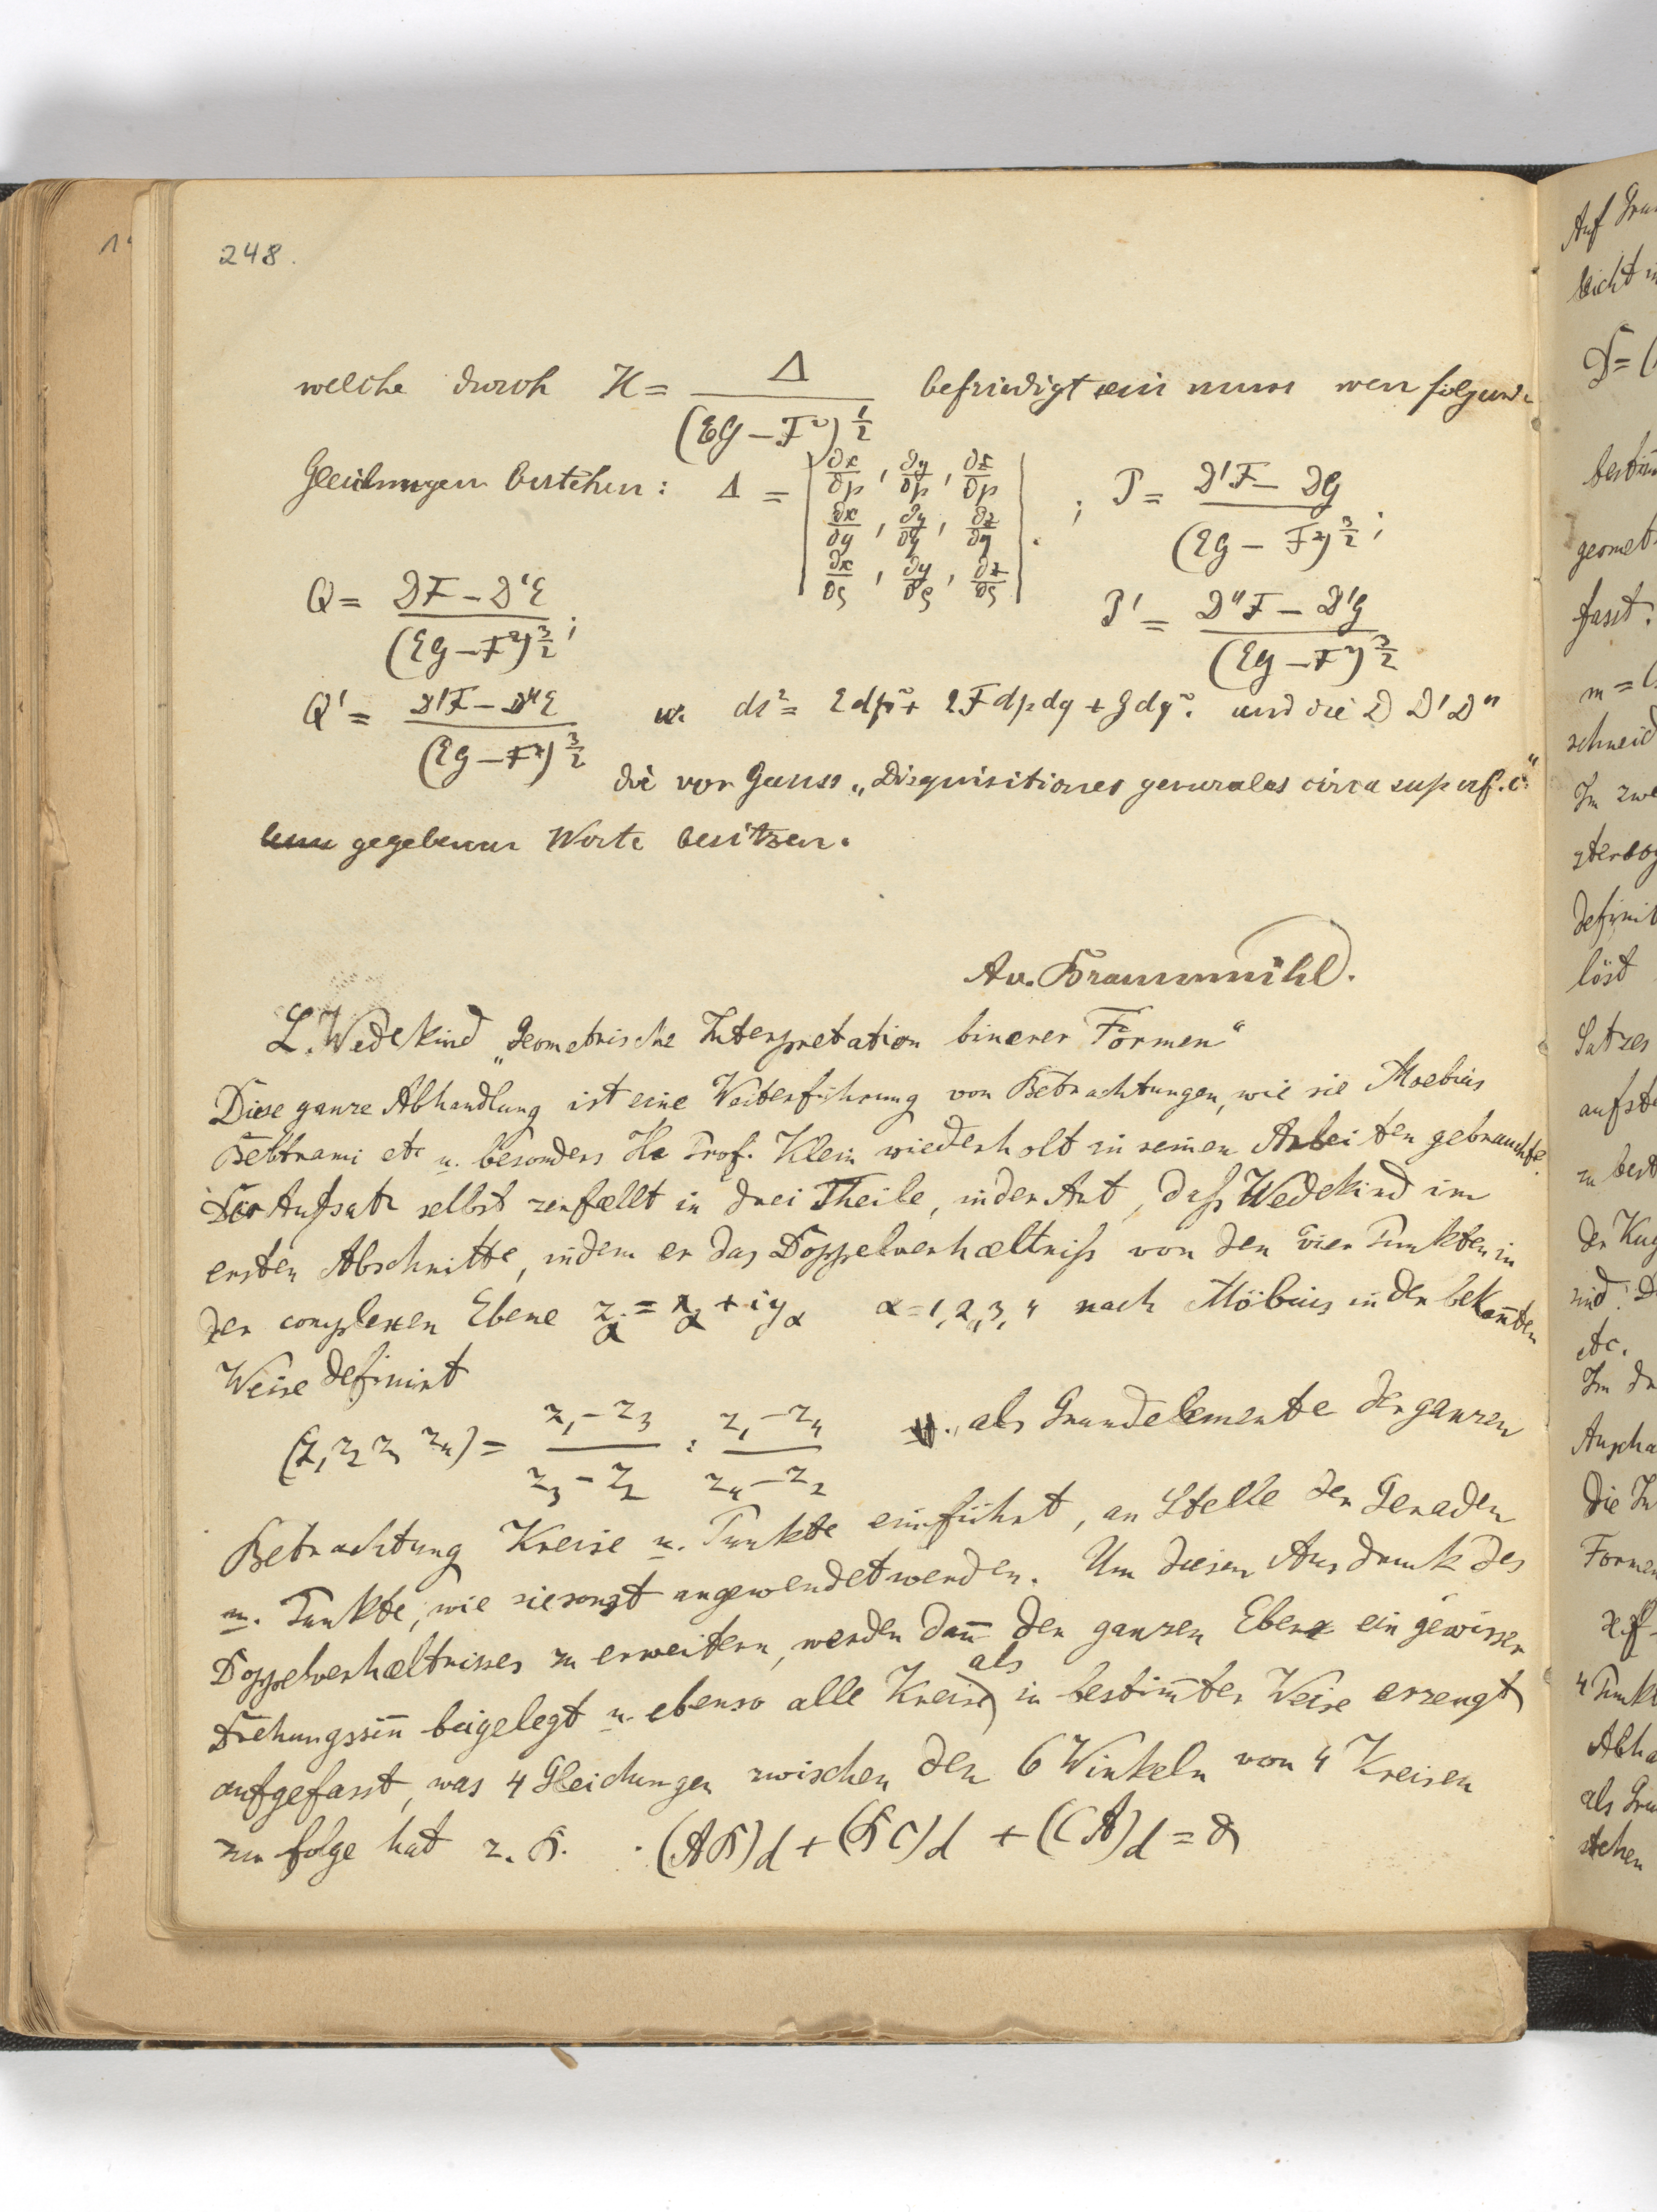 248.
welche durch H = Δ / (EG − F²)^{1/2} befriedigt ein muss wen folgende
Gleichungen bestehen: Δ = | ∂x/∂p, ∂y/∂p, ∂z/∂p ; ∂x/∂q, ∂y/∂q, ∂z/∂q ; ∂x/∂ς, ∂y/∂ς, ∂z/∂ς | ; P = (D'F − DG) / (EG − F²)^{3/2} ;
Q = (DF − D'E) / (EG − F²)^{3/2} ; P' = (D''F − D'G) / (EG − F²)^{3/2}
Q' = (D'F − D''E) / (EG − F²)^{3/2} u. ds² = Edp² + 2Fdpdq + Gdq². und die D D' D''
die von Gauss „Disquisitiones generales circa superf. c."
gegebenen Werte besitzen.
A v. Braunmühl.
L. Wedekind „Geometrische Interpretation binærer Formen"
Diese ganze Abhandlung ist eine Weiterführung von Betrachtungen, wie sie Moebius
Beltrami etc u. besonders H. Prof. Klein wiederholt in seinen Arbeiten gebrauchte.
Der Aufsatz selbst zerfællt in drei Theile, in der Art, daß Wedekind im
ersten Abschnitte, indem er das Doppelverhæltniß von den vier Punkten in
der complexen Ebene z_α = x_α + iy_α α = 1, 2, 3, 4 nach Möbius in der bekañten
Weise definirt
(z₁ z₂ z₃ z₄) = (z₁ − z₃)/(z₃ − z₂) : (z₁ − z₄)/(z₄ − z₂) als Grundelemente der ganzen
Betrachtung Kreise u. Punkte einführt, an Stelle der Geraden
u. Punkte, wie sie sonst angewendet werden. Um diesen Ausdruck des
Doppelverhæltnisses zu erweitern, werden dañ der ganzen Ebene ein gewisser
Drehungssiñ beigelegt u. ebenso alle Kreise als in bestim̄ter Weise erzeugt
aufgefasst, was 4 Gleichungen zwischen den 6 Winkeln von 4 Kreisen
zu folge hat z. B. (AB)d + (BC)d + (CA)d = π